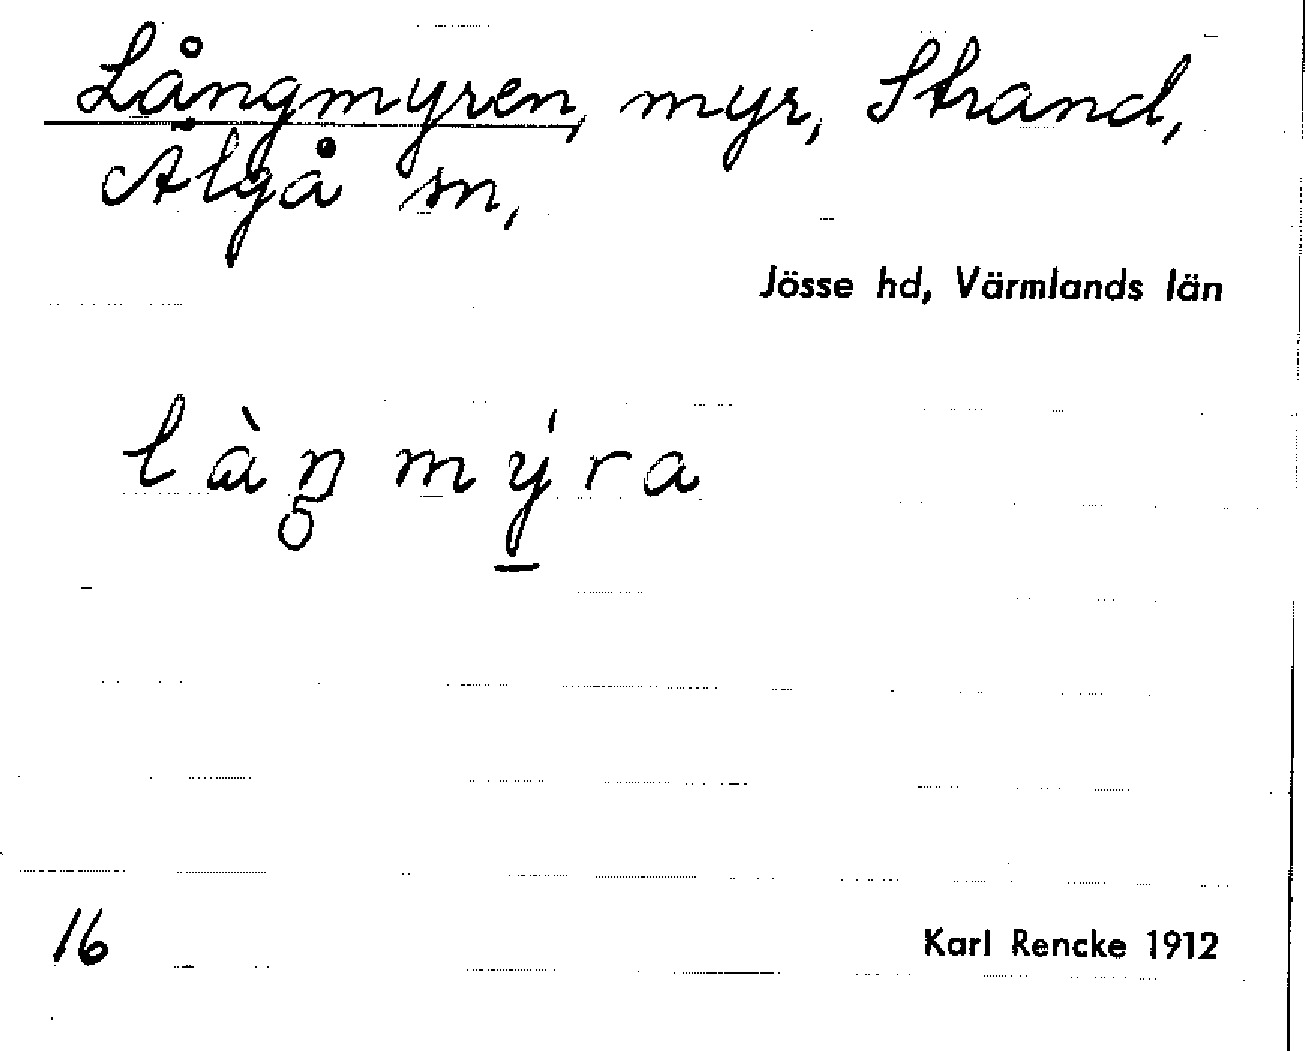 Långmyren, myr, Strand,
Älgå sn,
Jösse hd, Värmlands län
làŋ̥mý̠ra
16
Karl Rencke 1912